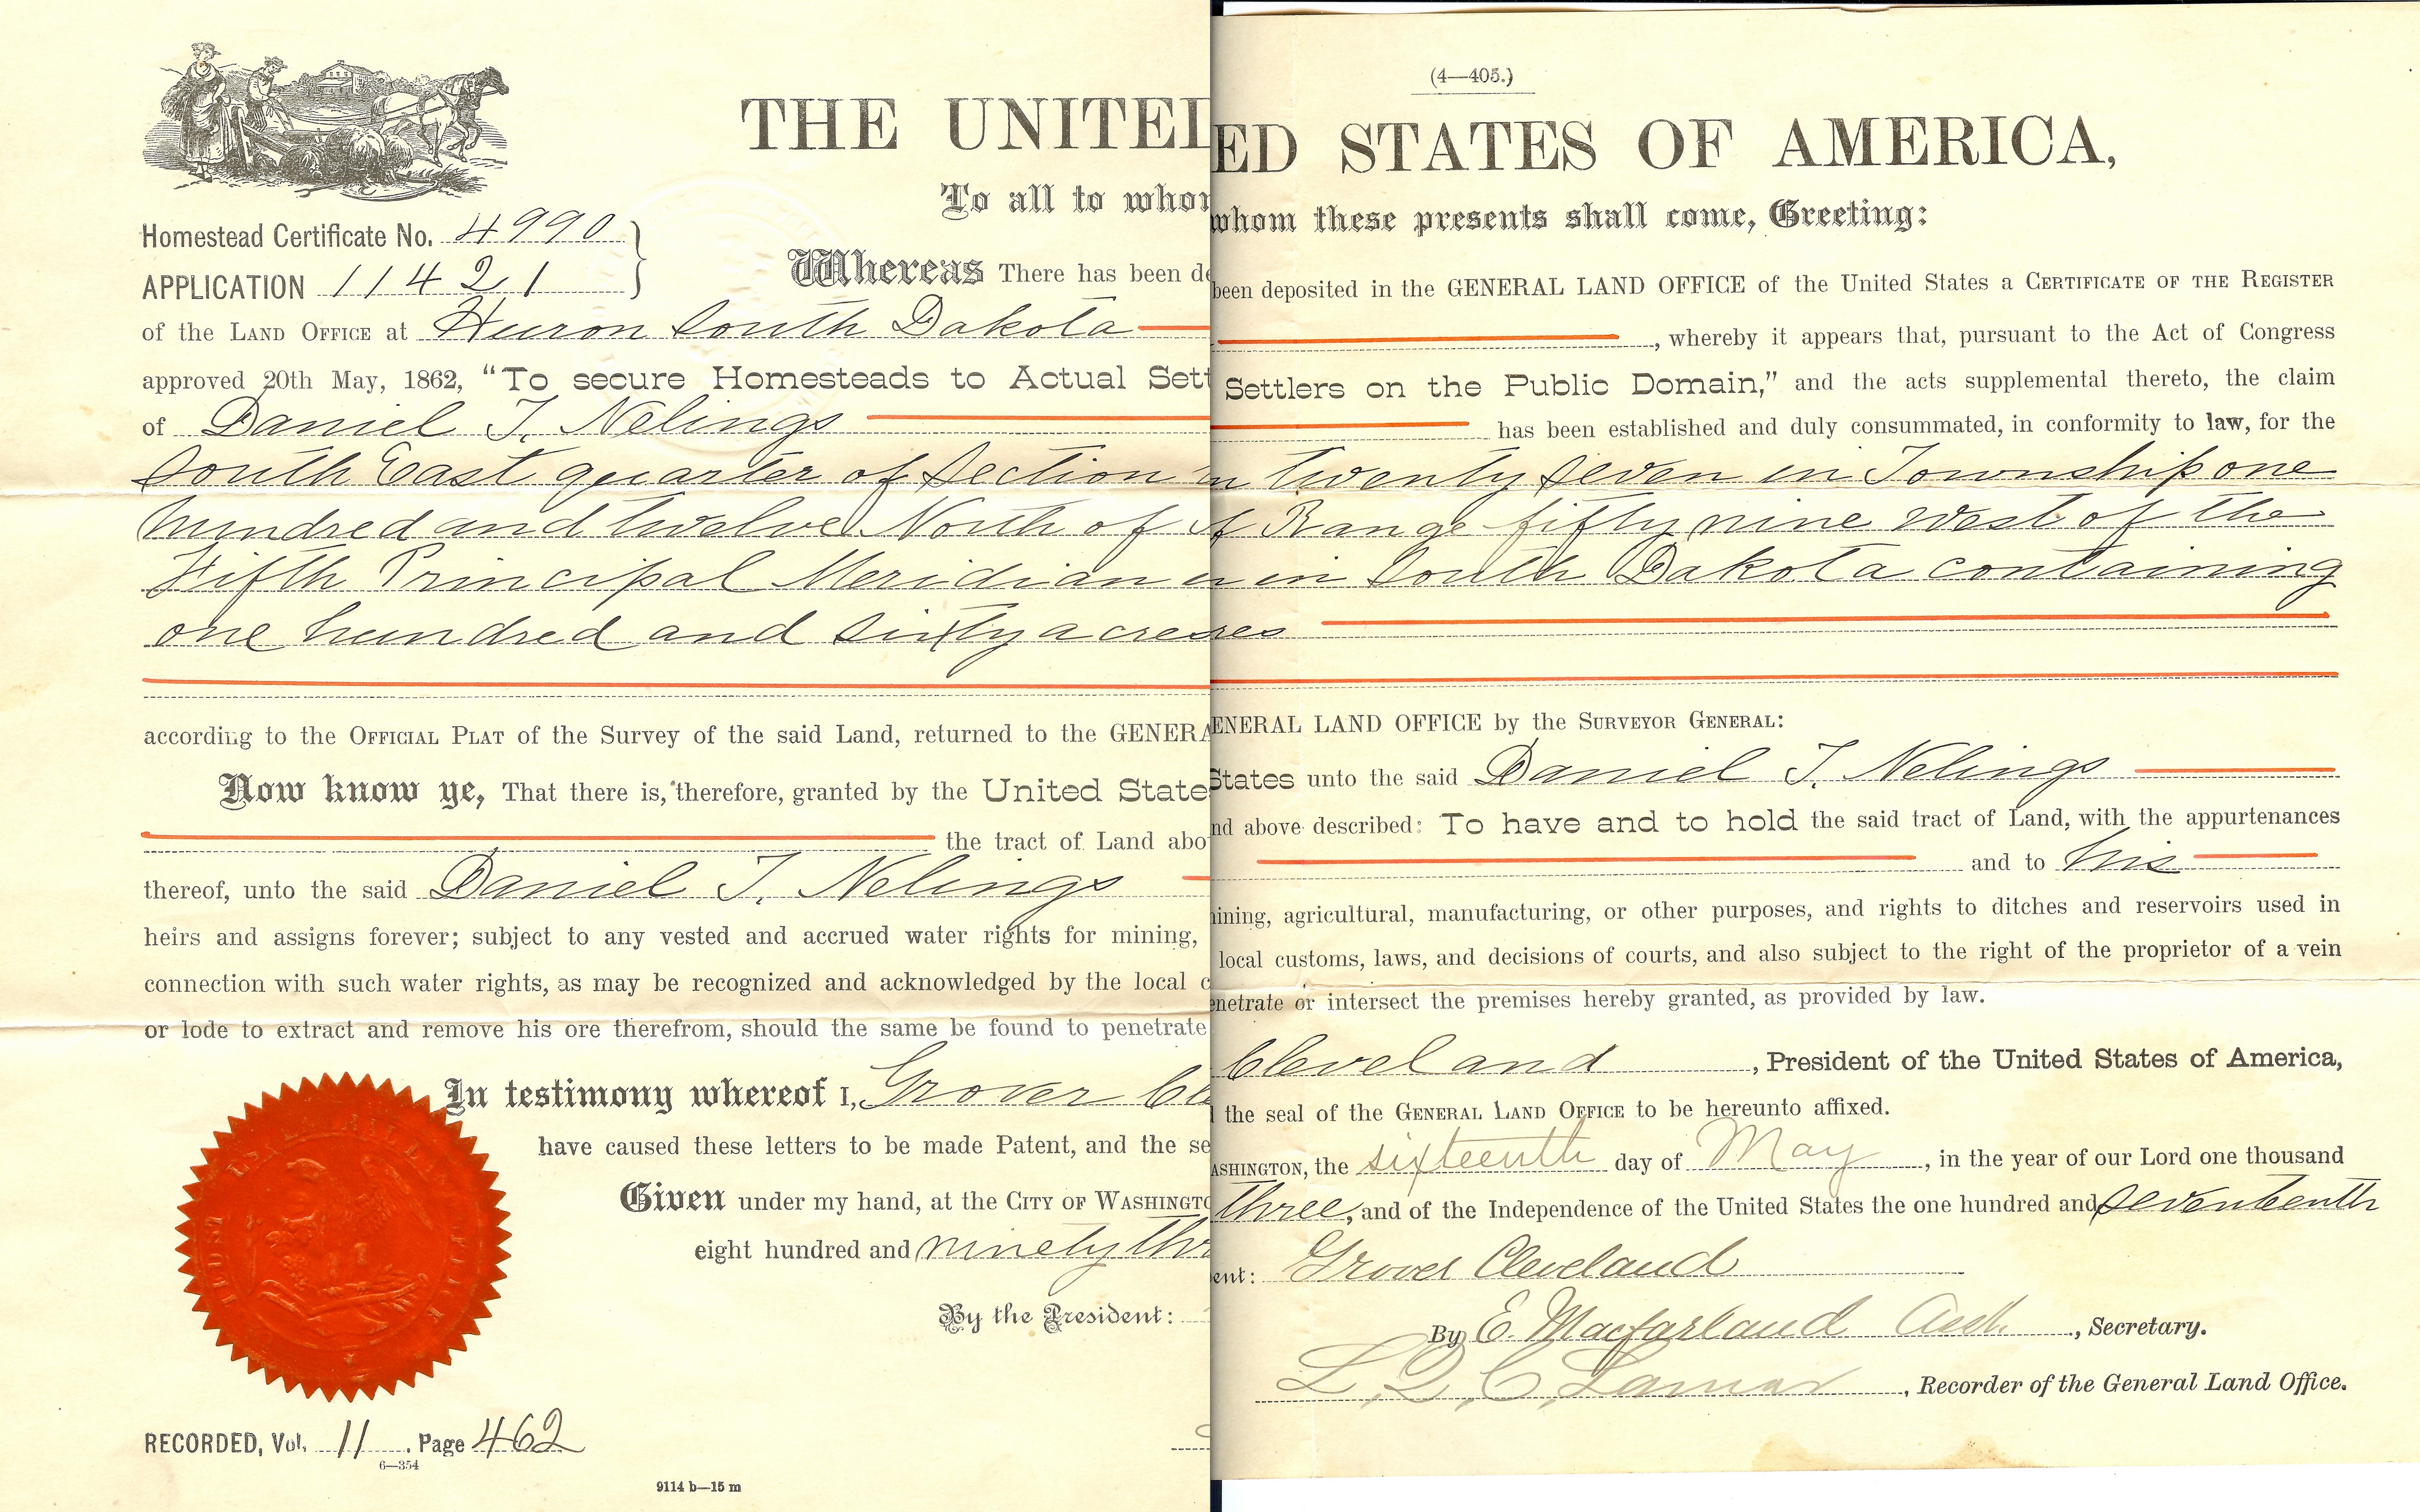 (4—405.)
THE UNITED STATES OF AMERICA,
To all to whom these presents shall come, Greeting:
Homestead Certificate No. 4990
APPLICATION 11421
Whereas There has been deposited in the GENERAL LAND OFFICE of the United States a CERTIFICATE OF THE REGISTER
of the LAND OFFICE at Huron South Dakota, whereby it appears that, pursuant to the Act of Congress
approved 20th May, 1862, “To secure Homesteads to Actual Settlers on the Public Domain,” and the acts supplemental thereto, the claim
of Daniel T. Nelings has been established and duly consummated, in conformity to law, for the
South East quarter of Section twenty seven in Township one
hundred and twelve North of Range fifty nine West of the
Fifth Principal Meridian in South Dakota containing
one hundred and sixty acres
according to the OFFICIAL PLAT of the Survey of the said Land, returned to the GENERAL LAND OFFICE by the SURVEYOR GENERAL:
Now know ye, That there is, therefore, granted by the United States unto the said Daniel T. Nelings
the tract of Land above described: To have and to hold the said tract of Land, with the appurtenances
thereof, unto the said Daniel T. Nelings and to his
heirs and assigns forever; subject to any vested and accrued water rights for mining, agricultural, manufacturing, or other purposes, and rights to ditches and reservoirs used in
connection with such water rights, as may be recognized and acknowledged by the local customs, laws, and decisions of courts, and also subject to the right of the proprietor of a vein
or lode to extract and remove his ore therefrom, should the same be found to penetrate or intersect the premises hereby granted, as provided by law.
In testimony whereof I, Grover Cleveland, President of the United States of America,
have caused these letters to be made Patent, and the seal of the GENERAL LAND OFFICE to be hereunto affixed.
Given under my hand, at the CITY OF WASHINGTON, the sixteenth day of May, in the year of our Lord one thousand
eight hundred and ninety three, and of the Independence of the United States the one hundred and seventeenth
By the President: Grover Cleveland
By E. Macfarland Asst., Secretary.
L. Q. C. Lamar, Recorder of the General Land Office.
RECORDED, Vol. 11. Page 462
6—354
9114 b—15 m